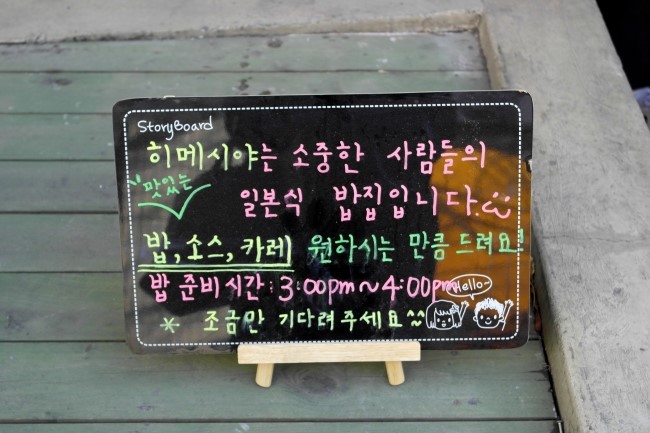 StoryBoard
히메시야는 소중한 사람들의
맛있는
일본식 밥집입니다.
밥, 소스, 카레 원하시는 만큼 드려요!
밥 준비시간 : 3:00pm~4:00pm
Hello~
* 조금만 기다려주세요^^